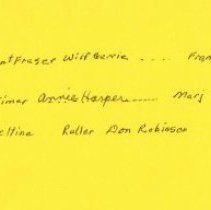 nt Fraser Wilf Gerrie .... Fran
timar Annie Harper...... Marj
ettina Roller Don Robinson